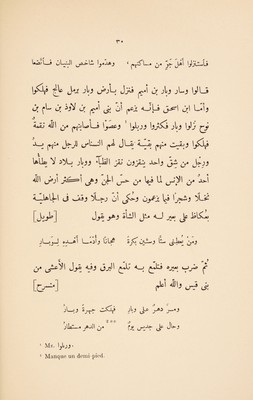 ٣٠
فاستنزلوا أهل جو من مساكنهم ، وهدّموا شاخص البنيان فاتّضعا
قالوا وسار وبار بن أميم فنزل بأرض وبار برمل عالج فهلكوا
وأمّا ابن اسحق فإنّه يزعم أنّ بنى أميم بن لاوذ بن سام بن
نوح نزلوا وبار فكثروا وربلوا ¹ وعصوا فأصابتهم من الله نقمة
فهلكوا وبقيت منهم بقيّة يقال لهم النسناس للرجل منهم يد
ورجل من شقّ واحد ينقزون نقز الظباء ووبار بلاد لا يطأها
أحد من الإنس لما فيها من حسّ الجنّ وهى أكثر أرض الله
نخلا وشجرا فيما يزعمون وحكى أنّ رجلا وقف فى الجاهليّة
بعكاظ على بعير له مثل الشأة وهو يقول [طويل]
ومن يعطنى ستّا وستّين بكرة هجانا وأدما أهده لوبار
ثمّ ضرب بعيره فتلمّع به تلمّع البرق وفيه يقول الأعشى من
بنى قيس والله أعلم [منسرح]
ومرّ دهر على وبار فهلكت جهرة وبار
وحال على جديس يوم °°° من الدهر مستطار
¹ Ms. وربلوا.
² Manque un demi-pied.